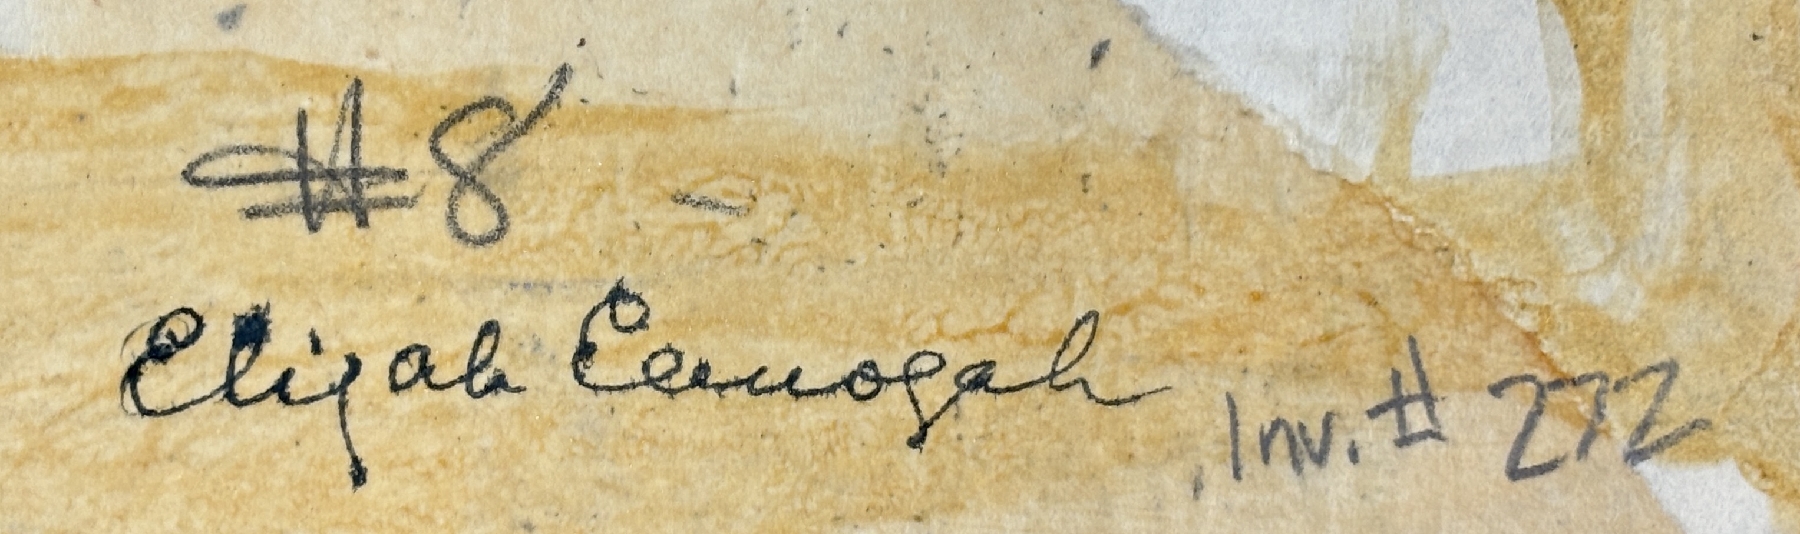 #8
Elijah Ecmogah Inv. # 272